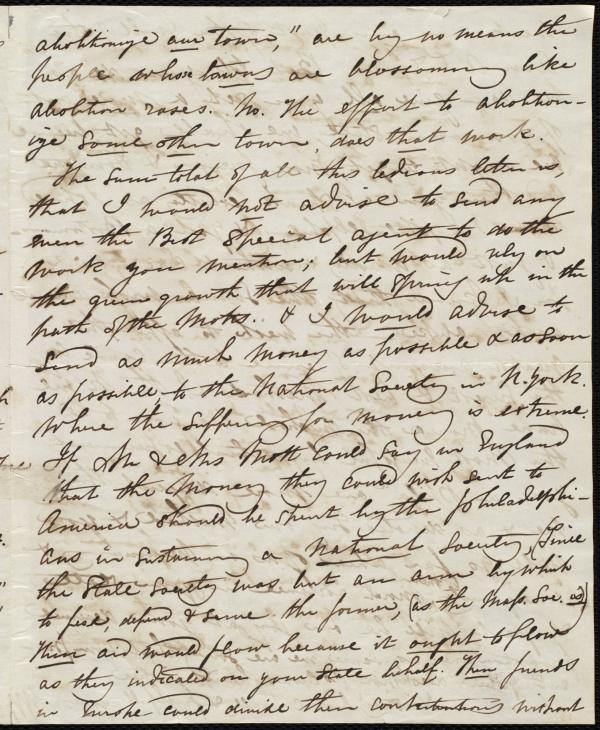 abolitionize our town," are by no means the
people whose towns are blossoming like
abolition roses. No. The effort to abolition-
ize some other town, does that work.
The sum total of all this tedious letter is,
that I would not advise to send any
even the Best Special agent to do the
work you mention; but would rely on
the green growth that will spring up in the
path of the Motts. & I would advise to
send as much money as possible & as soon
as possible to the National Society in N. York.
Where the suffering for money is extreme.
If Mr & Mrs Mott could say in England
that the Money they could wish sent to
America should be spent by the Philadelphi-
ans in sustaining a National Society, (since
the State Society was but an arm by which
to feed, defend & serve the former, (as the Mass. Soc. is)
Then aid would flow because it ought to flow
as they indicated on your State behalf. Then friends
in Europe could divide their contributions without